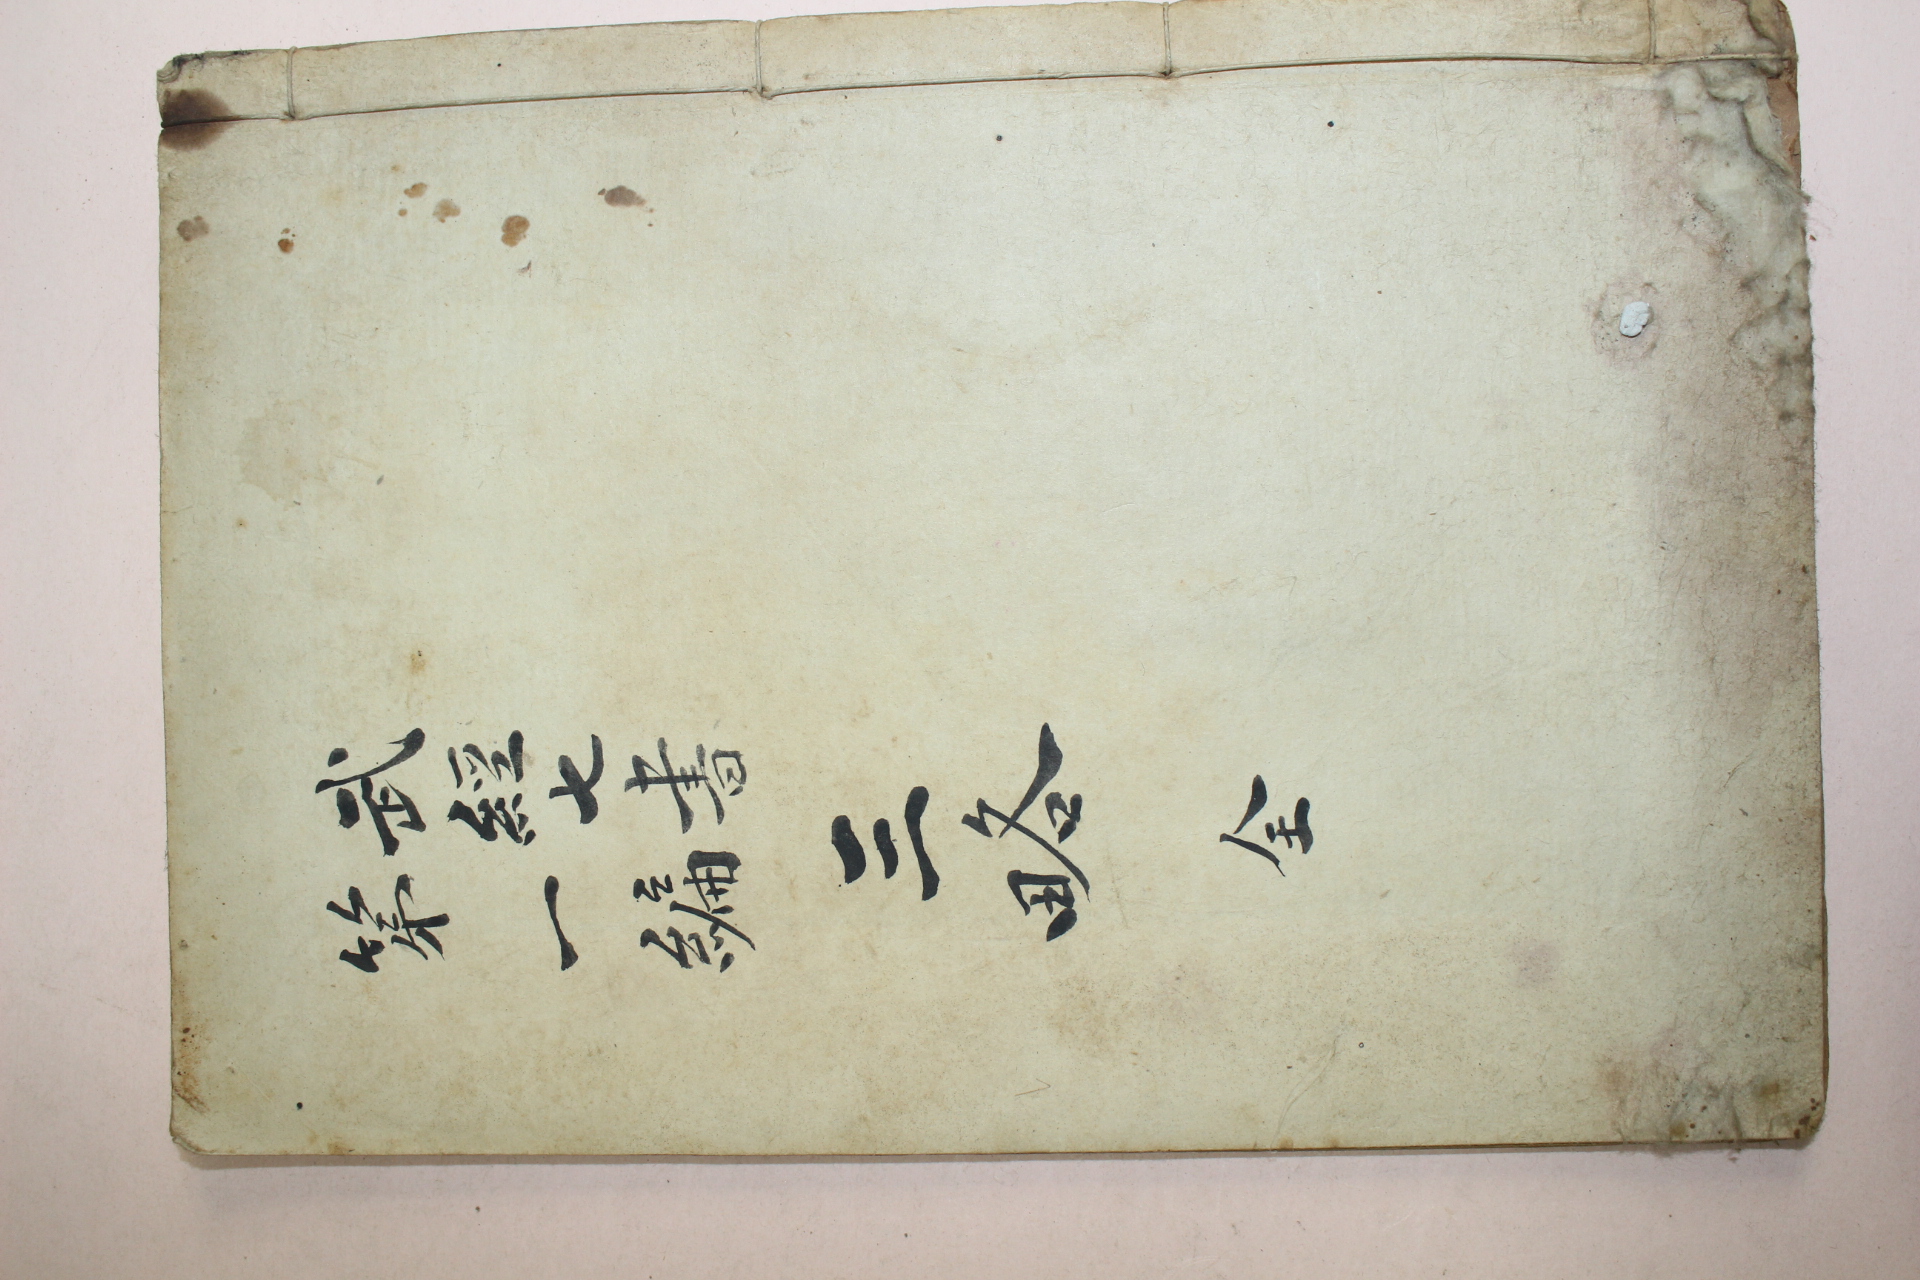 武經七書
第一編
三略 全